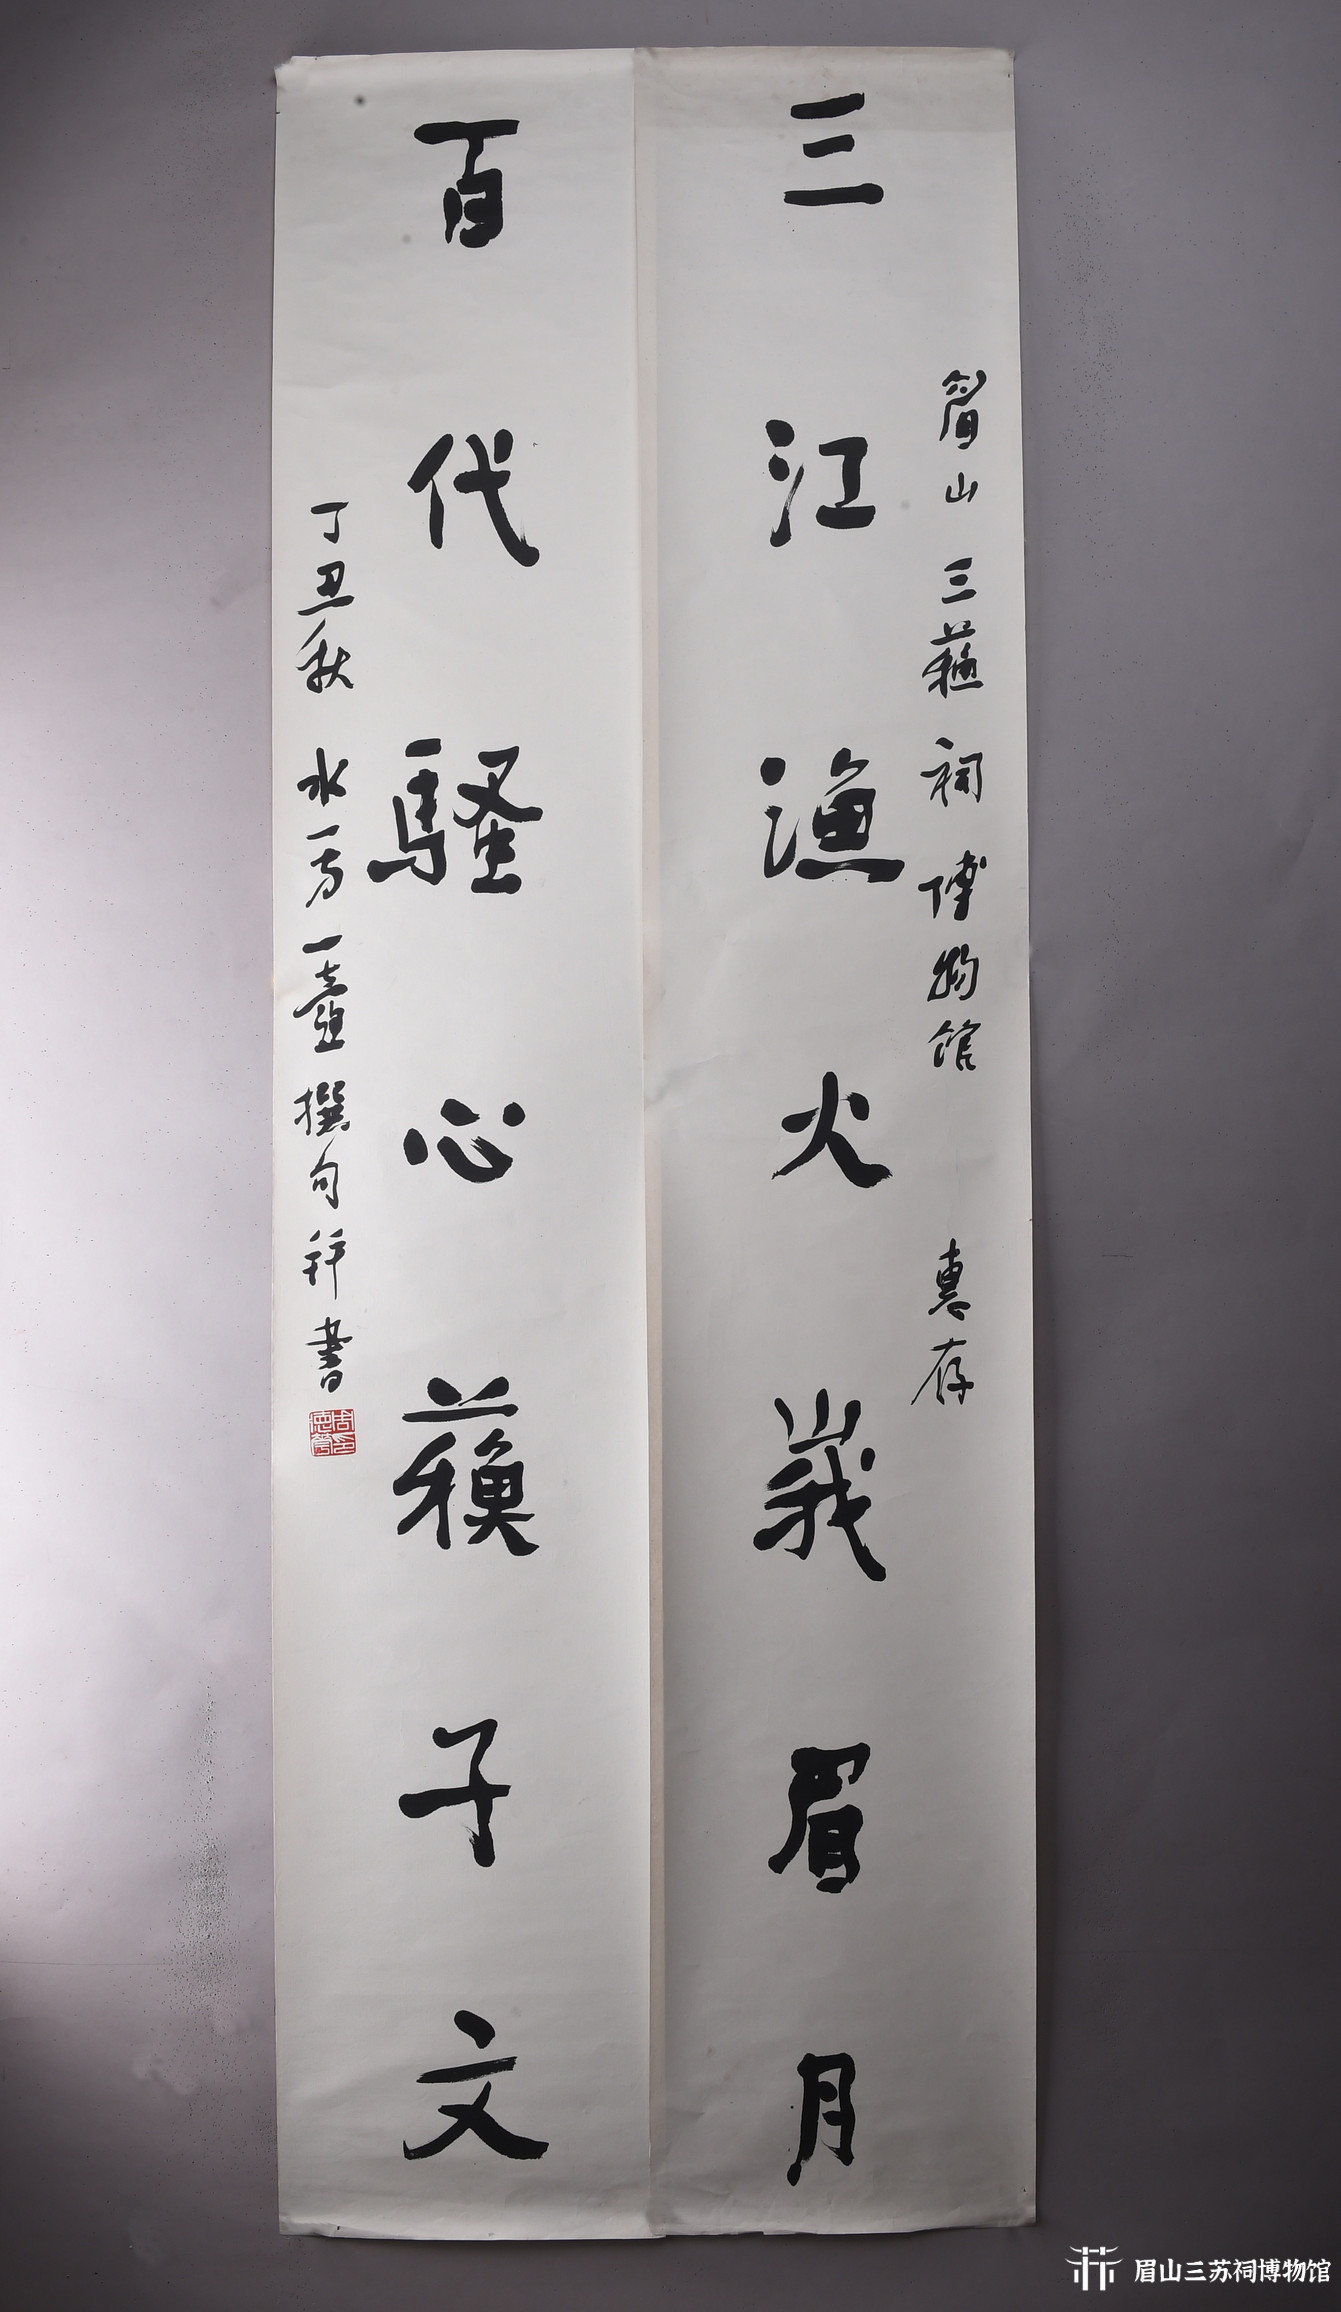 眉山三蘇祠博物館 惠存
三江漁火峩眉月
百代騷心蘇子文
丁丑秋 水方 撰句并書
眉山三苏祠博物馆